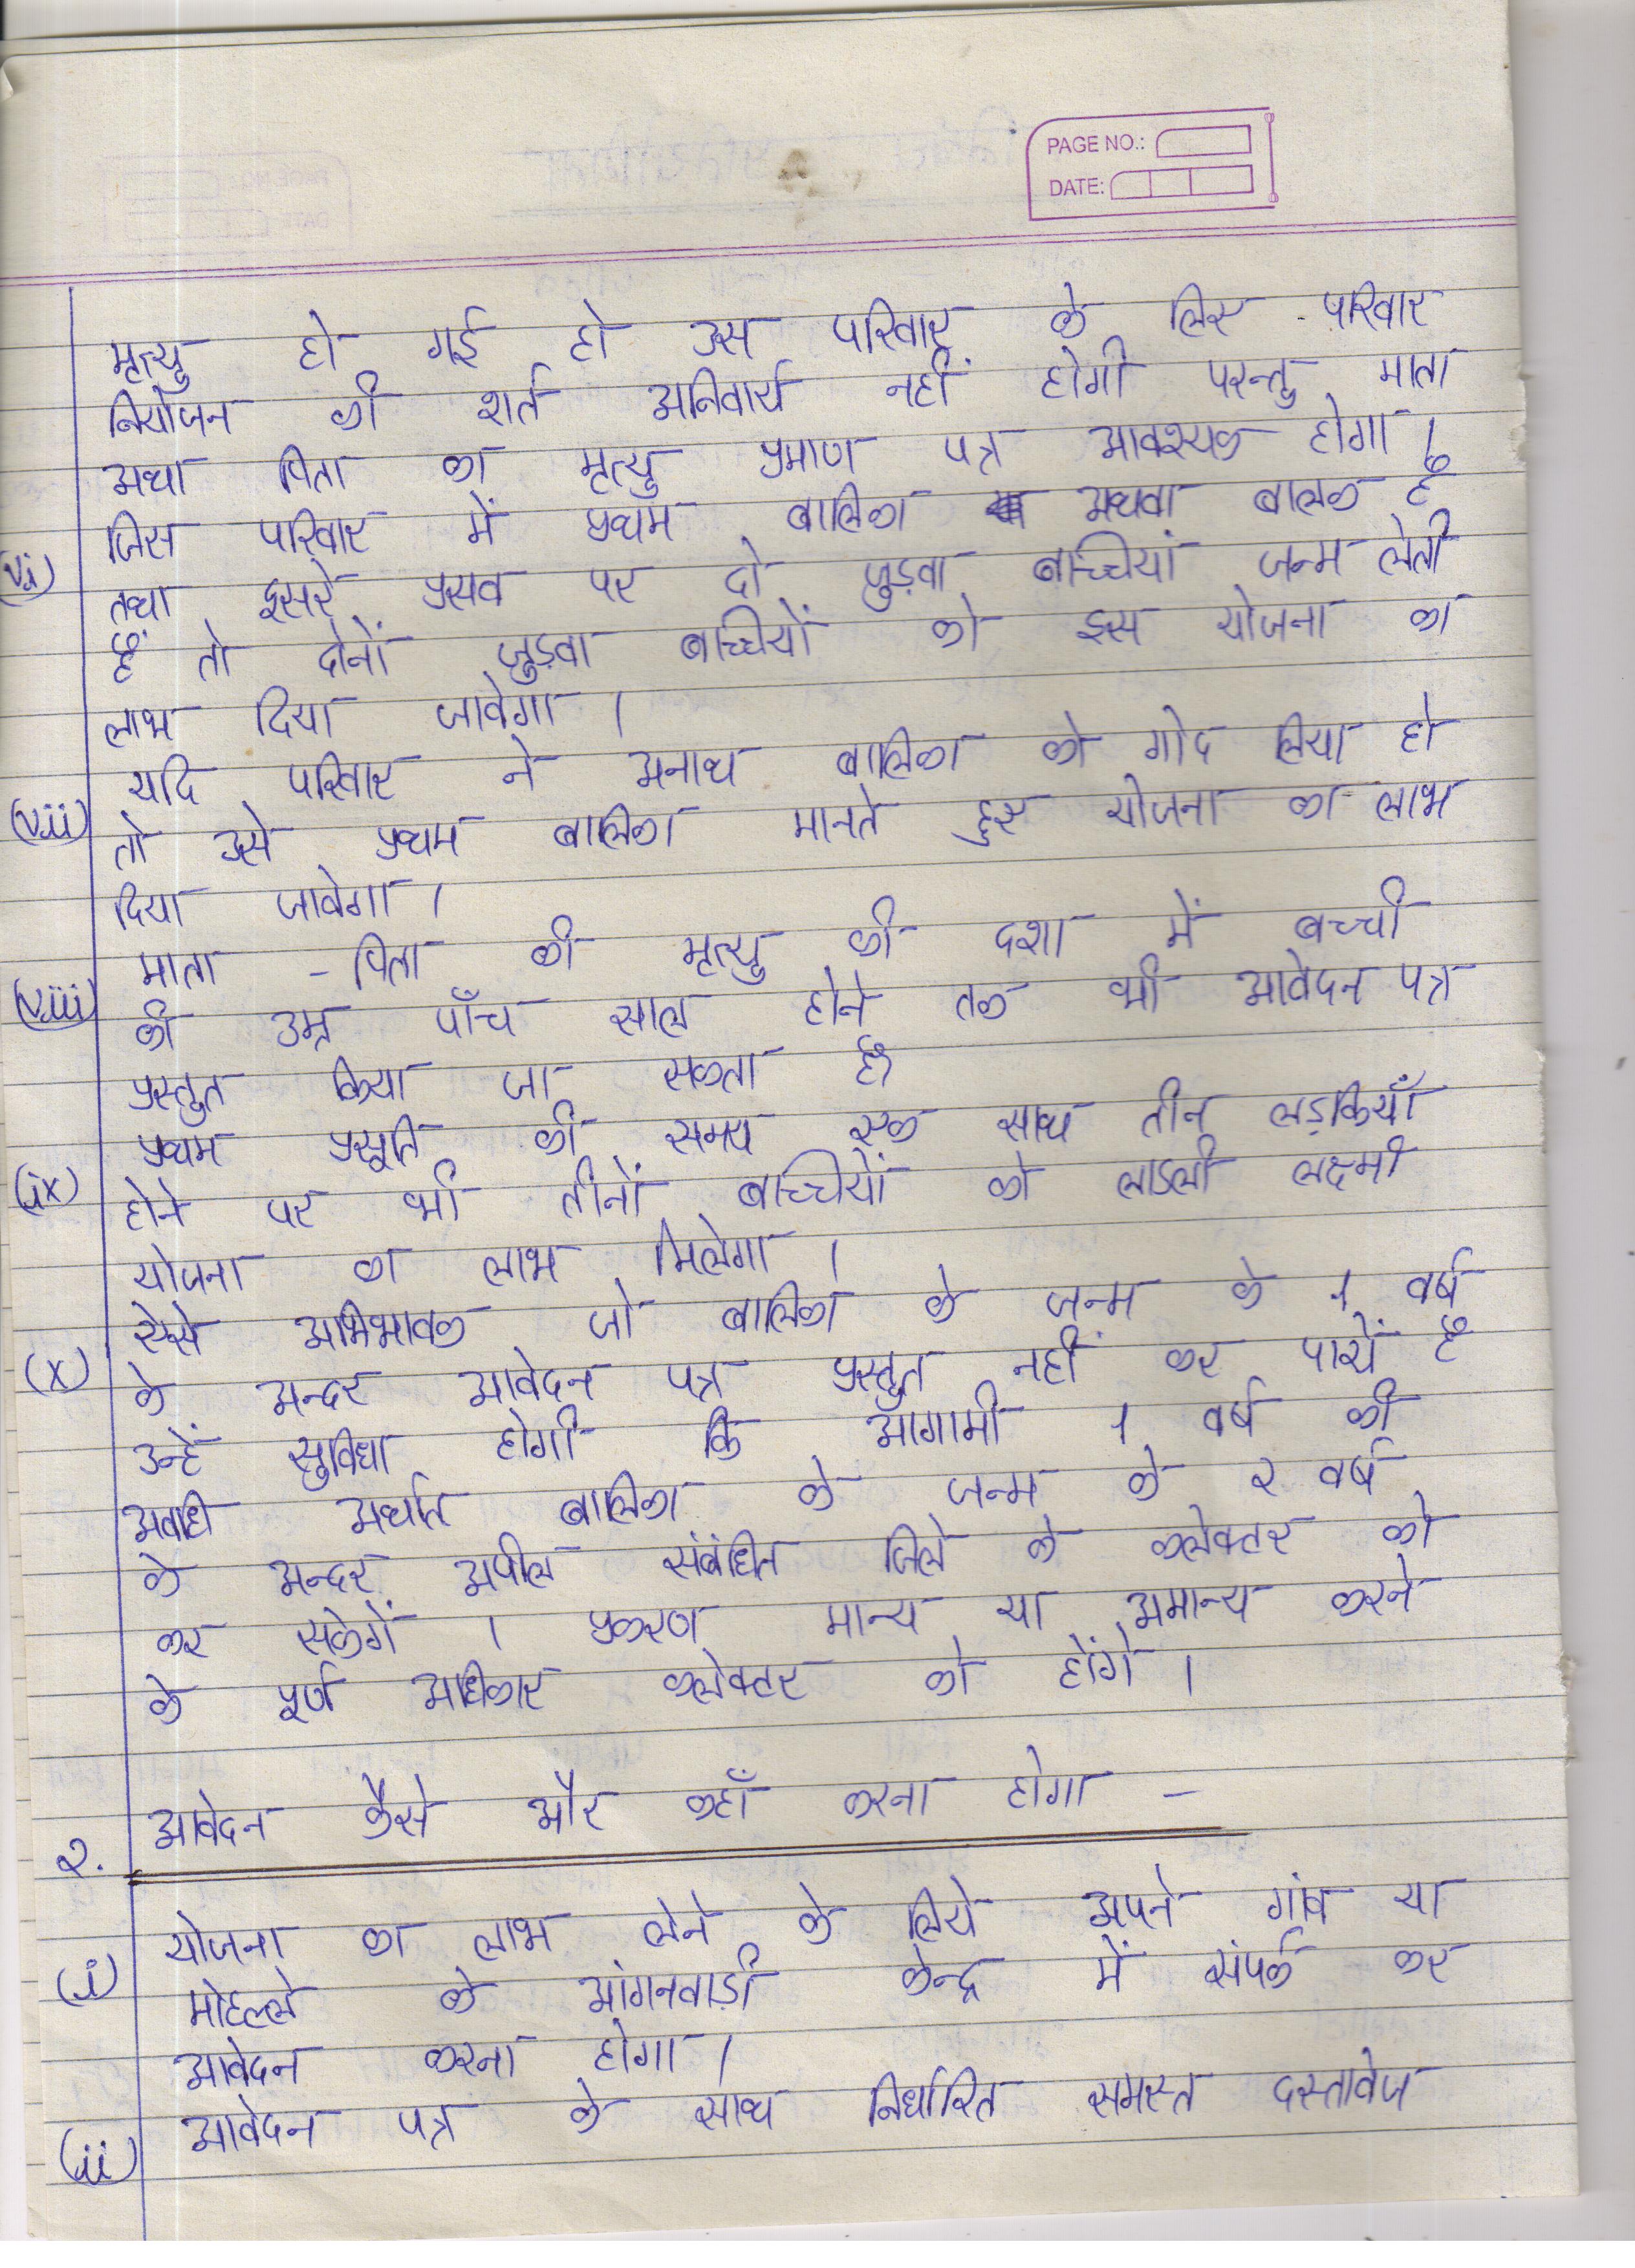 PAGE NO.:
DATE:
मृत्यु हो गई हो उस परिवार के लिए परिवार
नियोजन की शर्त अनिवार्य नहीं होगी परन्तु माता
अथा पिता का मृत्यु प्रमाण पत्र आवश्यक होगा।
(vi) जिस परिवार में प्रथम बालिका अथवा बालक है
तथा दूसरे प्रसव पर दो जुड़वा बच्चियां जन्म लेती
है तो दोनों जुड़वा बच्चियों को इस योजना का
लाभ दिया जावेगा।
(vii) यदि परिवार ने अनाथ बालिका को गोद लिया हो
तो उसे प्रथम बालिका मानते हुए योजना का लाभ
दिया जावेगा।
(viii) माता - पिता की मृत्यु की दशा में बच्ची
की उम्र पाँच साल होने तक भी आवेदन पत्र
प्रस्तुत किया जा सकता है
(ix) प्रथम प्रसूति की समय एक साथ तीन लड़कियाँ
होने पर भी तीनों बच्चियों को लाडली लक्ष्मी
योजना का लाभ मिलेगा।
(x) ऐसे अभिभावक जो बालिका के जन्म के 1 वर्ष
के अन्दर आवेदन पत्र प्रस्तुत नहीं कर पायें है
उन्हें सुविधा होगी कि आगामी 1 वर्ष की
अवधि अर्थात बालिका के जन्म के २ वर्ष
के अन्दर अपील संबंधित जिले के कलेक्टर को
कर सकेगें। प्रकरण मान्य या अमान्य करने
के पूर्ण अधिकार कलेक्टर को होंगे।
२. आवेदन कैसे और कहाँ करना होगा -
(i) योजना का लाभ लेने के लिये अपने गांव या
मोहल्ले के आंगनवाड़ी केन्द्र में संपर्क कर
आवेदन करना होगा।
(ii) आवेदन पत्र के साथ निर्धारित समस्त दस्तावेज